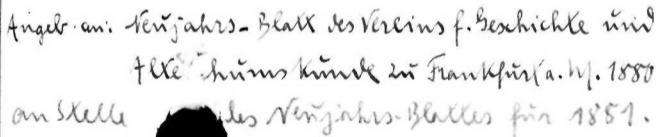 Angeb. an: Neujahrs-Blatt des Vereins f. Geschichte und
Altertumskunde zu Frankfurt a. M. 1880
an Stelle des Neujahrs-Blattes für 1881.